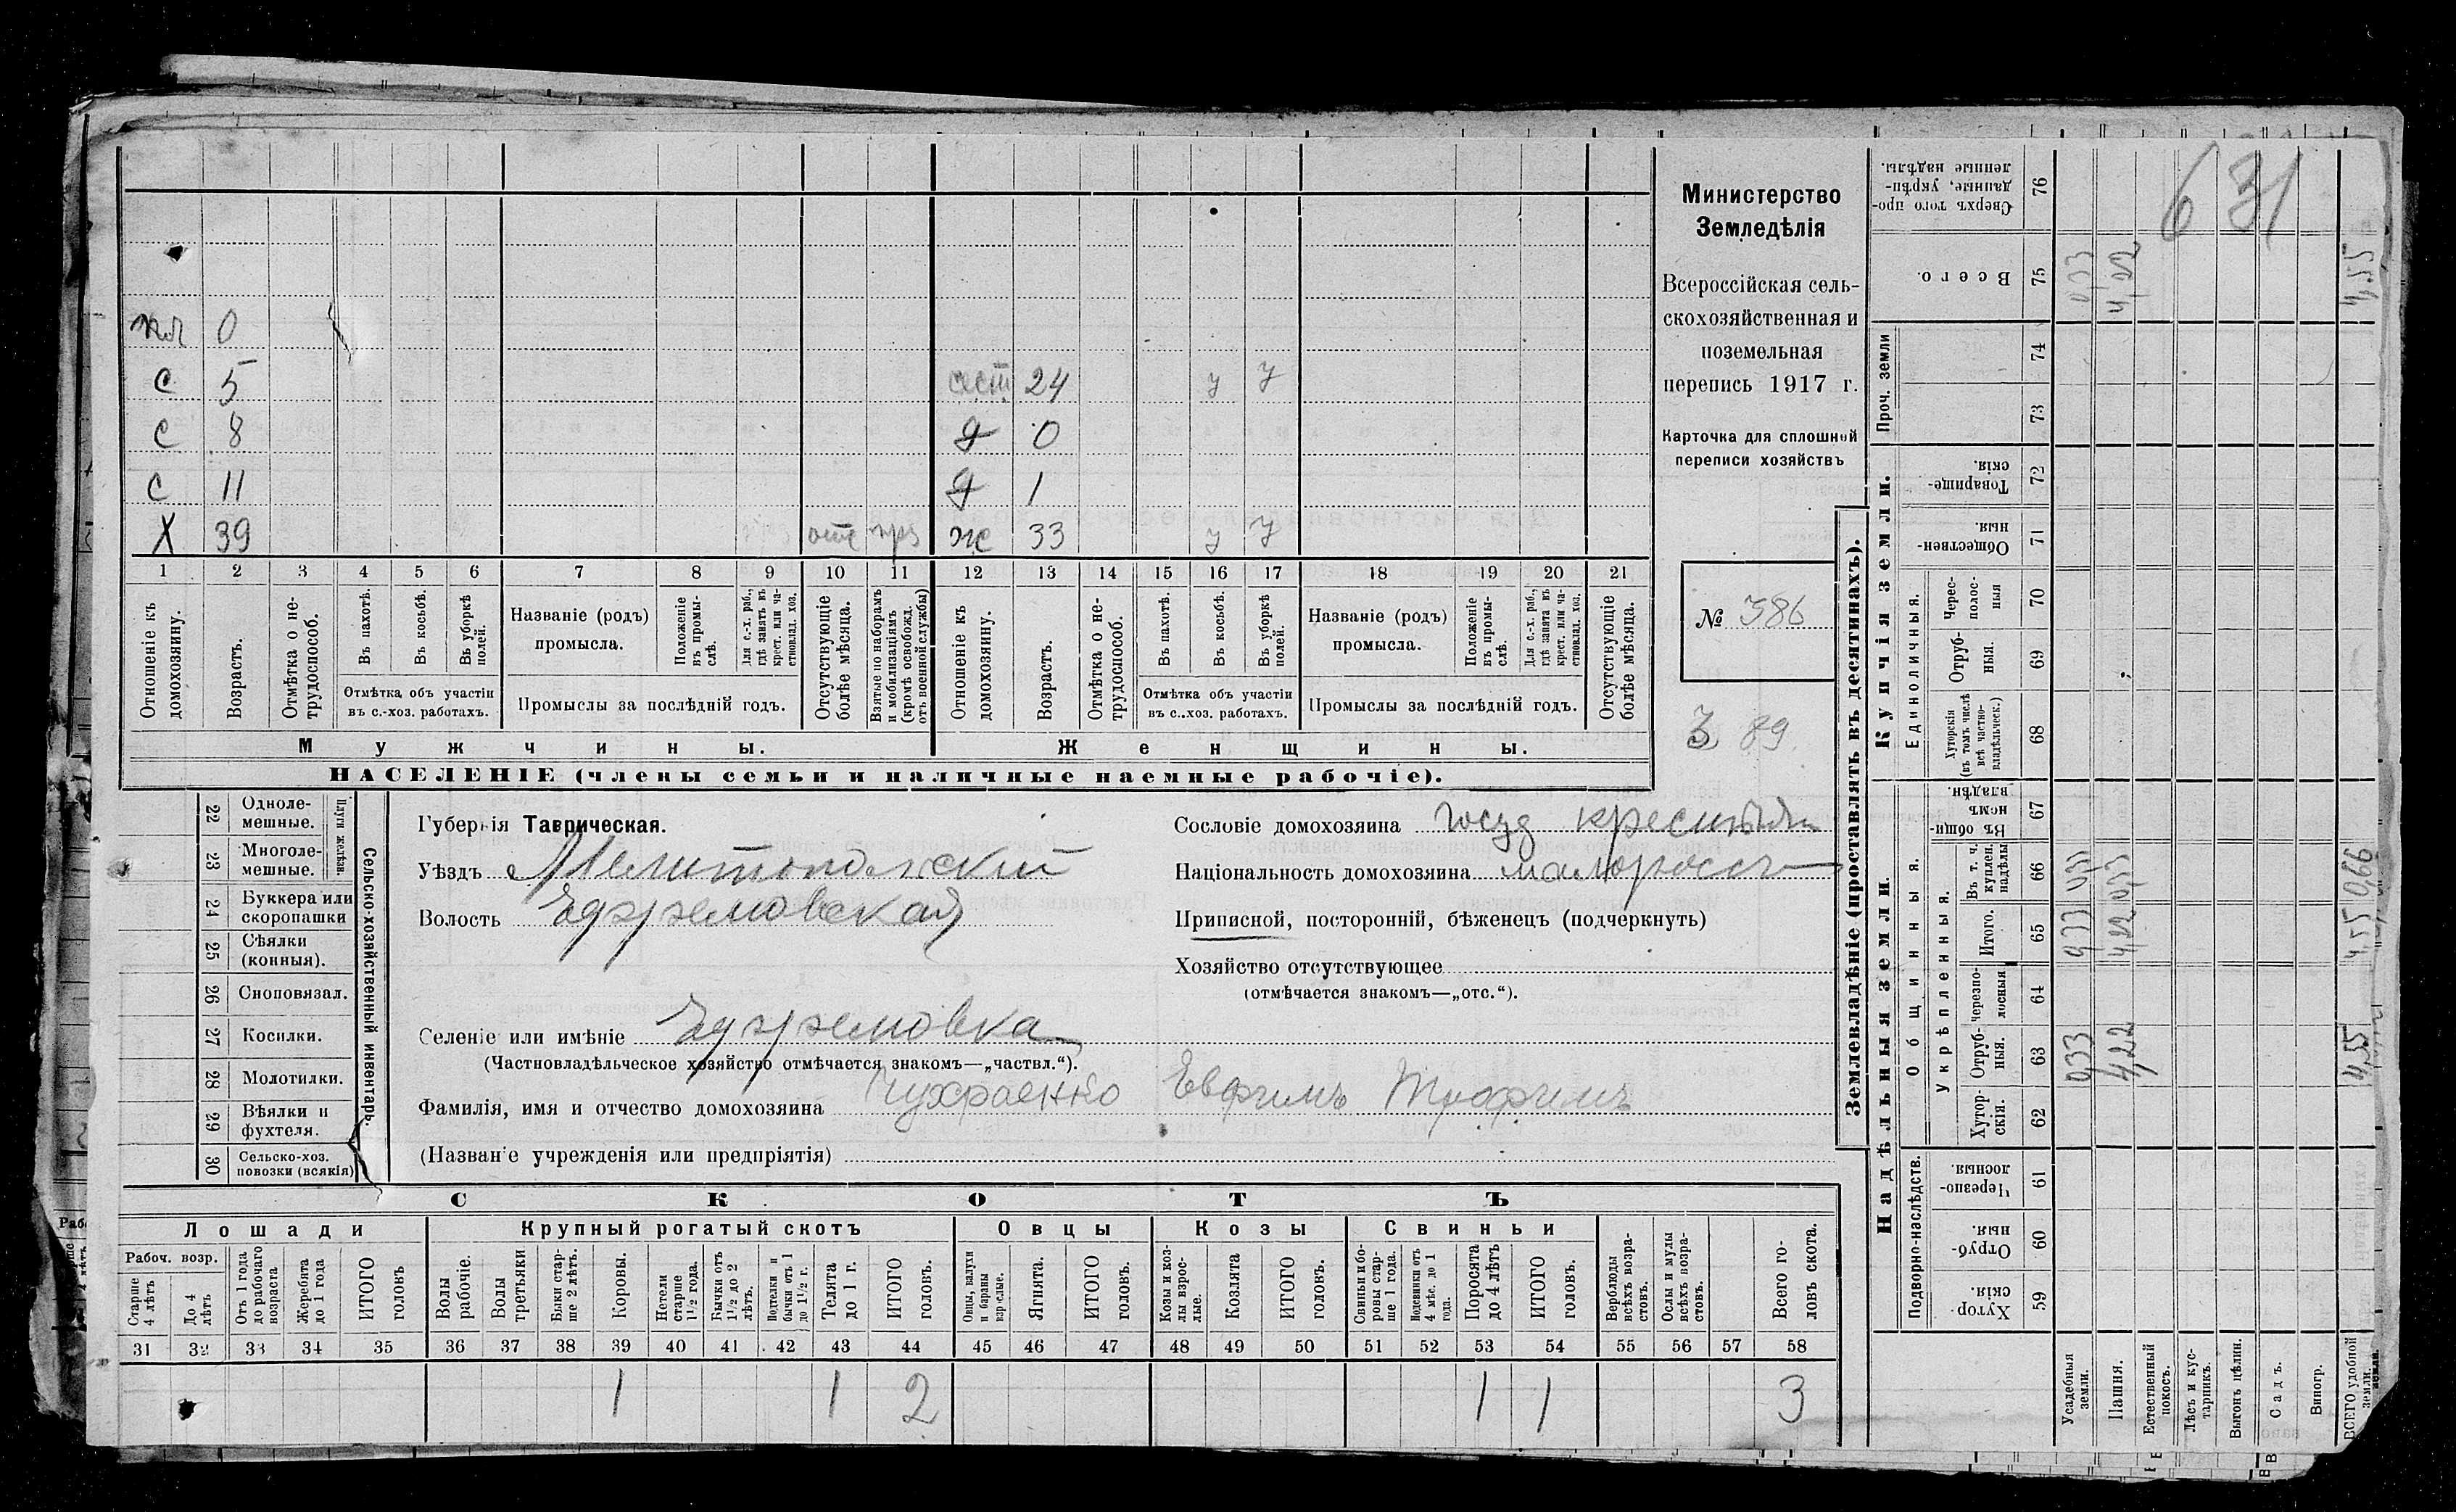 631
Министерство
Земледѣлія
Всероссійская сель-
скохозяйственная и
поземельная
перепись 1917 г.
Карточка для сплошной
переписи хозяйствъ
№ 386
89
0
С 5 сест 24 у у
С 8 д 0
С 11 д 1
Х 39 отс ж 33 у у
1 2 3 4 5 6 7 8 9 10 11 12 13 14 15 16 17 18 19 20 21
Отношеніе къ домохозяину.
Возрастъ.
Отмѣтка о не-трудоспособ.
Въ пахотѣ.
Въ косьбѣ.
Въ уборкѣ полей.
Отмѣтка объ участіи
въ с.-хоз. работахъ.
Названіе (родъ)
промысла.
Положеніе въ промы-слѣ.
Для с.-х. раб., гдѣ занятъ въ крест. или ча-стновлад. хоз.
Промыслы за послѣдній годъ.
Отсутствующіе болѣе мѣсяца.
Взятые по наборамъ и мобилизаціямъ (кромѣ освобожд. отъ военной службы)
Отношеніе къ домохозяину.
Возрастъ.
Отмѣтка о не-трудоспособ.
Въ пахотѣ.
Въ косьбѣ.
Въ уборкѣ полей.
Отмѣтка объ участіи
въ с.-хоз. работахъ.
Названіе (родъ)
промысла.
Положеніе въ промы-слѣ.
Для с.-х. раб., гдѣ занята въ крест. или ча-стновлад. хоз.
Промыслы за послѣдній годъ.
Отсутствующіе болѣе мѣсяца.
Мужчины. Женщины.
НАСЕЛЕНІЕ (члены семьи и наличные наемные рабочіе).
Сельско-хозяйственный инвентарь.
Плуги желѣзн.
22 Одноле-мешные.
23 Многоле-мешные.
24 Буккера или скоропашки
25 Сѣялки (конныя).
26 Сноповязал.
27 Косилки.
28 Молотилки.
29 Вѣялки и фухтеля.
30 Сельско-хоз. повозки (всякія)
Губернія Таврическая.
Уѣздъ Мелитопольскій
Волость Ефремовская
Селеніе или имѣніе Ефремовка
(Частновладѣльческое хозяйство отмѣчается знакомъ—„частвл.“).
Сословіе домохозяина госуд крестьян
Національность домохозяина малороссъ
Приписной, посторонній, бѣженецъ (подчеркнуть)
Хозяйство отсутствующее
(отмѣчается знакомъ—„отс.“).
Фамилія, имя и отчество домохозяина Чухраенко Евфимъ Трофимъ
(Названіе учрежденія или предпріятія)
СКОТЪ
Лошади Крупный рогатый скотъ Овцы Козы Свиньи
Рабоч. возр.
Старше 4 лѣтъ
До 4 лѣтъ
Отъ 1 года до рабочаго возраста
Жеребята до 1 года
ИТОГО головъ
Волы рабочіе.
Волы третьяки
Быки стар-ше 2 лѣтъ.
Коровы.
Нетели старше 1½ года.
Бычки отъ 1½ до 2 лѣтъ.
Подтелки и бычки отъ 1 до 1½ г.
Телята до 1 г.
ИТОГО головъ.
Овцы, валухи и бараны взрослые.
Ягнята.
ИТОГО головъ.
Козы и коз-лы взрос-лые.
Козлята
ИТОГО головъ.
Свиньи и бо-ровы стар-ше 1 года.
Подсвинки отъ 4 мѣс. до 1 года.
Поросята до 4 лѣтъ
ИТОГО головъ.
Верблюды всѣхъ возра-стовъ.
Ослы и мулы всѣхъ возра-стовъ.
Всего го-ловъ скота.
31 32 33 34 35 36 37 38 39 40 41 42 43 44 45 46 47 48 49 50 51 52 53 54 55 56 57 58
1 1 2 1 1 3
Землевладѣніе (проставлять въ десятинахъ).
Купчія земли.
Сверхъ того про-данные, укрѣп-ленные надѣлы. 76
Всего. 75 0,33 4,22 4,55
Проч. земли
74
73
Товарище-скія. 72
Обществен-ныя. 71
Единоличныя.
Черес-полос-ныя 70
Отруб-ныя. 69
Хуторскія (въ томъ числѣ всѣ частно-владѣльческ.) 68
Надѣльныя земли.
Общинныя.
Въ общи-номъ владѣн. 67
Укрѣпленныя.
Въ т. ч. куплен. надѣлы 66 0,33 0,33 0,66
Итого. 65 0,33 4,22 4,55
Черезпо-лосныя 64
Отруб-ныя. 63 0,33 4,22 4,55
Хутор-скія. 62
Подворно-наслѣдств.
Черезпо-лосныя. 61
Отруб-ныя. 60
Хутор-скія. 59
Усадебныя земли.
Пашня.
Естественный покосъ.
Лѣсъ и кус-тарникъ.
Выгонъ цѣлин.
Садъ.
Виногр.
ВСЕГО удобной земли.